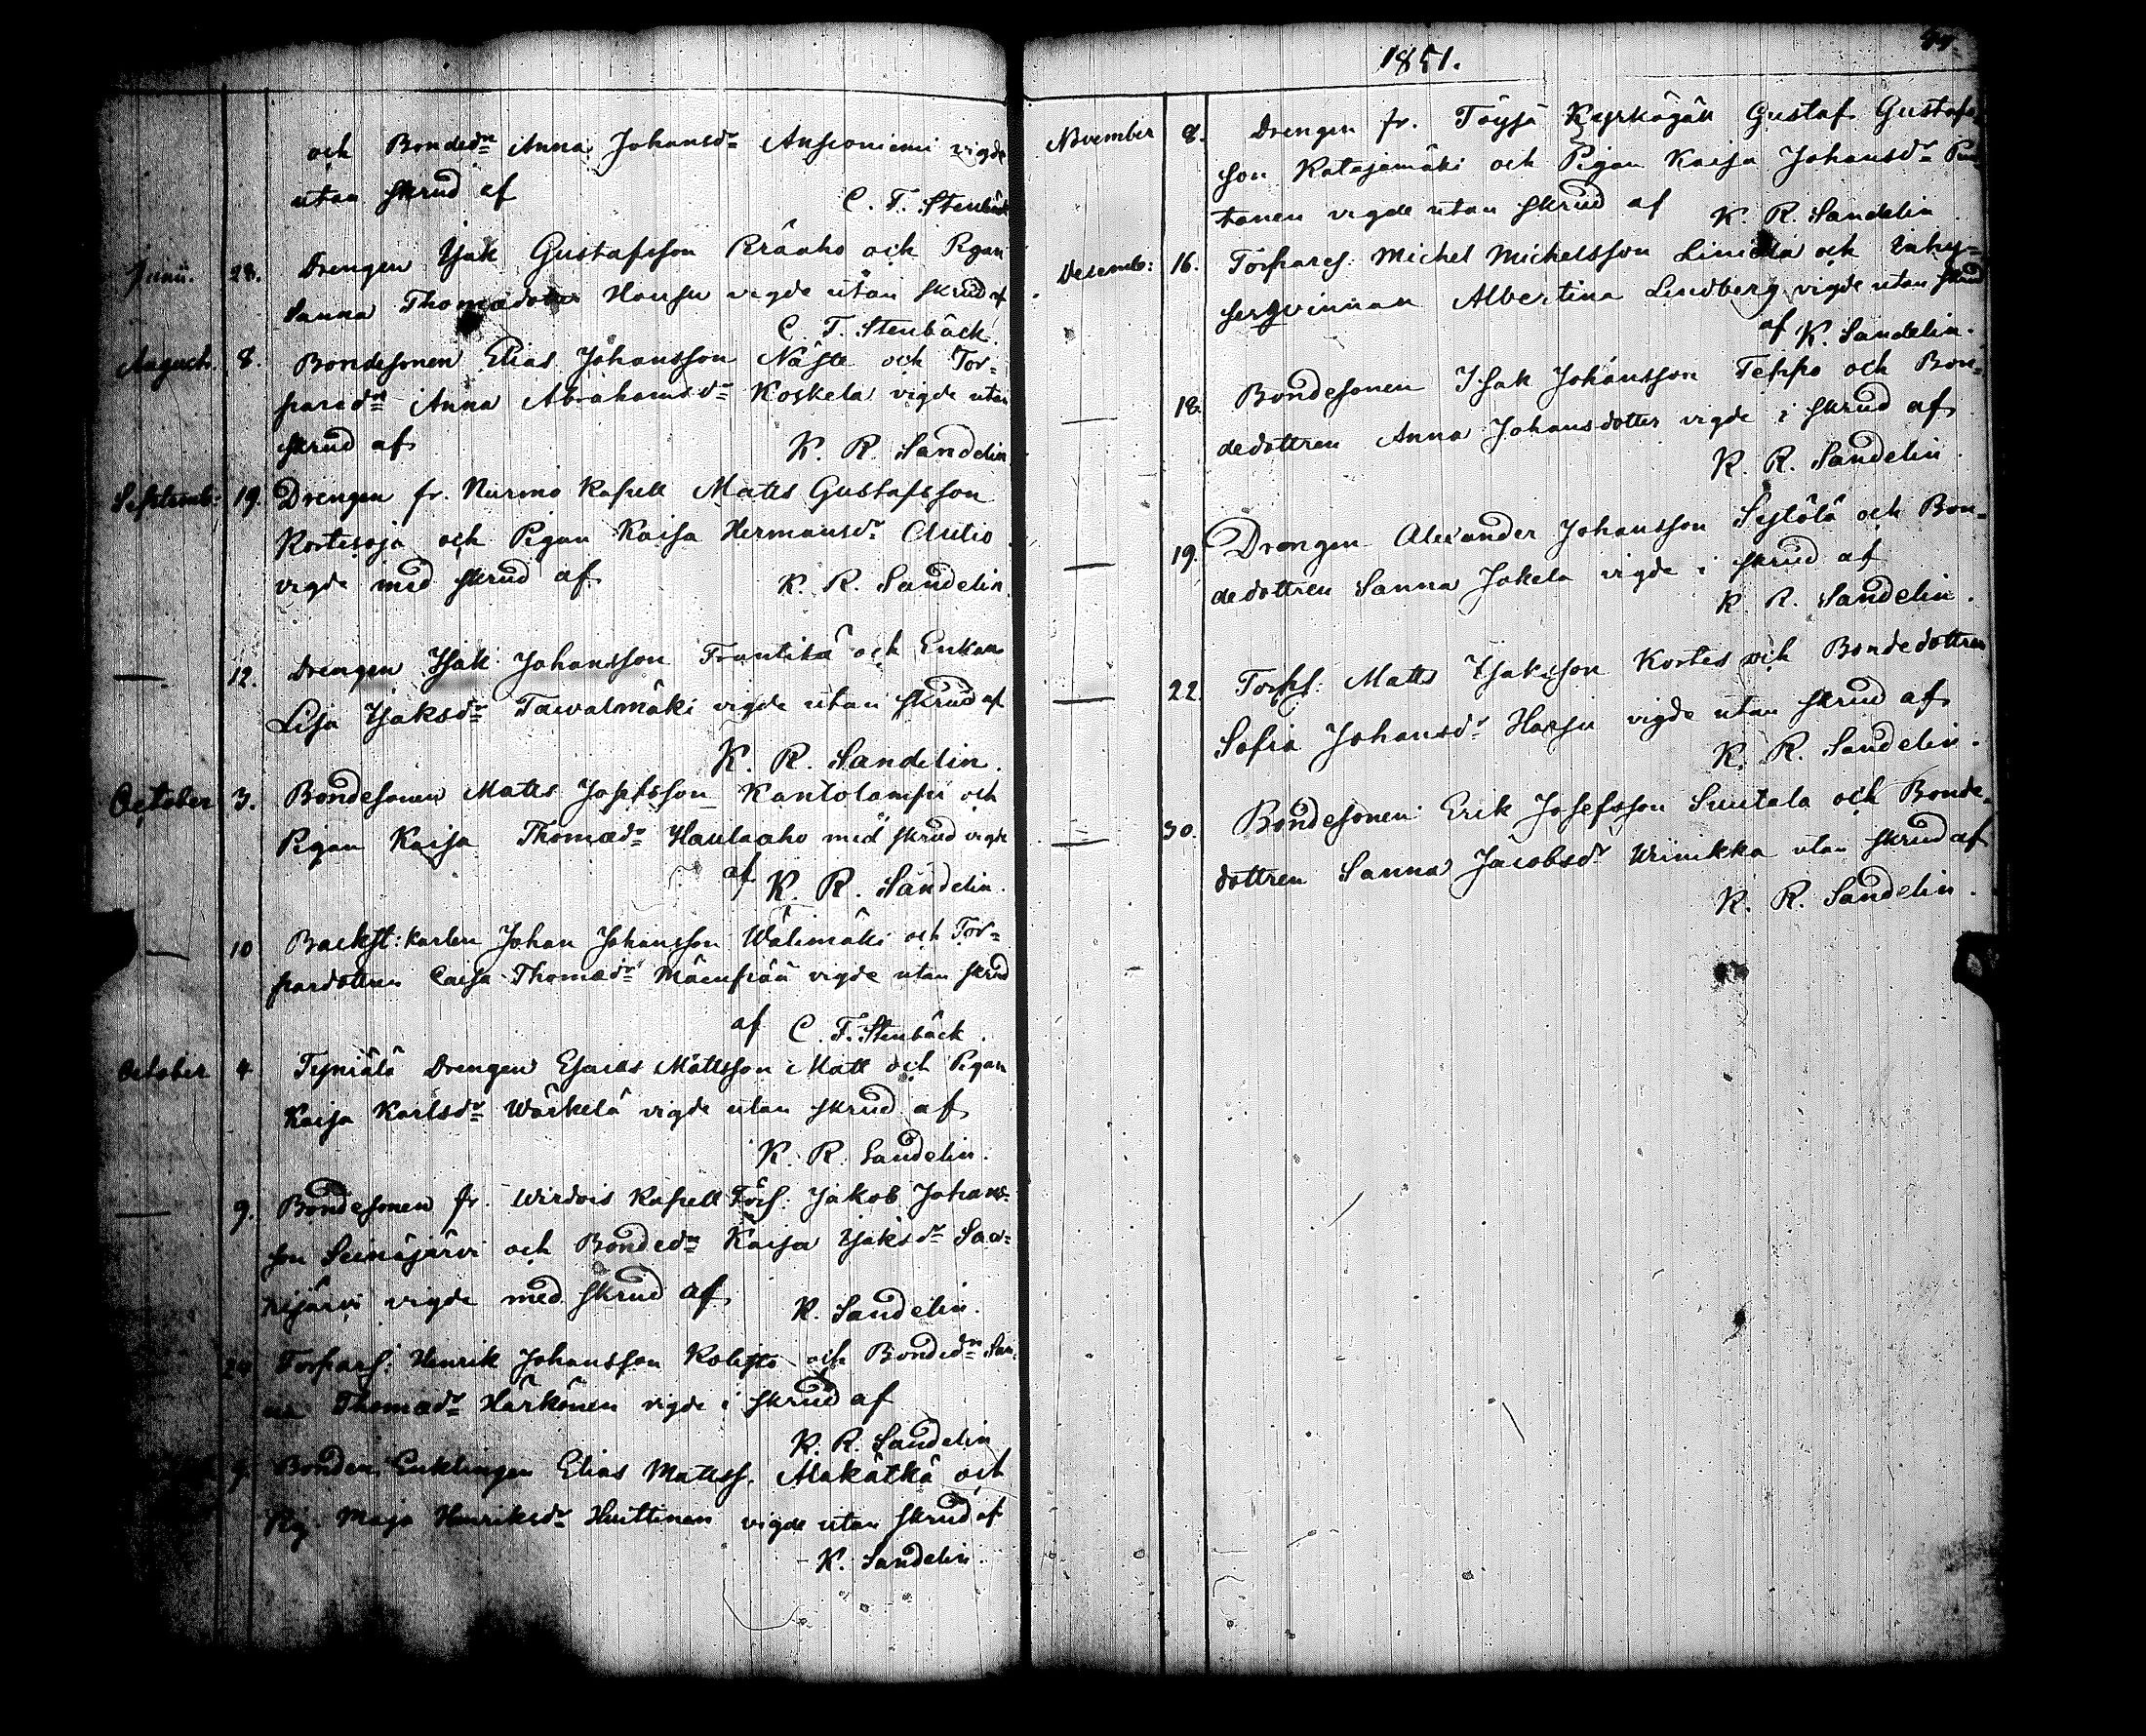 och Bonded:n Anna Johansd:r Ansioniemi vigde
utan skrud af
C. F. Stenbäck
Junii. 28. Drengen Isak Gustafsson Krääho och Pigan
Sanna Thomædotter Hansu vigde utan skrud af
C. F. Stenbäck.
August. 8. Bondesonen Elias Johansson Näste och Tor-
pared:n Anna Abrahamsd:r Koskela vigde utan
skrud af
K. R. Sandelin.
Septemb: 19. Drengen fr. Nurmo Kapell Matts Gustafsson
Kortesoja och Pigan Kaisa Hermansd:r Autio
vigde med skrud af K. R. Sandelin.
— 12. Drengen Isak Johansson Frantilä och Enkan
Lisa Isaksd:r Taivalmäki vigde utan skrud af
K. R. Sandelin.
October 3. Bondesonen Matts Josefsson Kantolampi och
Pigan Kaisa Thomæd:r Hautaaho med skrud vigde
af K. R. Sandelin.
— 10 Backst: karlen Johan Johansson Wälimäki och Tor-
pardottren Caisa Thomæd:r Mäenpää vigde utan skrud
af C. F. Stenbäck.
October 4 Drengen Esaias Mattsson Matt och Pigan
Kaisa Karlsd:r Wärkelä vigde utan skrud af
K. R. Sandelin.
— 9. Bondesonen fr. Wirdois Kapell Jakob Johans-
son Seinäjärvi och Bonded:n Kaisa Isaksd:r
vigde med skrud af K. Sandelin.
24 Torpars: Henrik Johansson Kolisto och Bonded:n San-
na Thomæd:r Härkönen vigde i skrud af
K. R. Sandelin
9. Bonden Enklingen Elias Mattss. Alakätkä och
Pig. Maja Henriksd:r Huittinen vigde utan skrud af
K. Sandelin.
1851.
November 8. Drengen fr. Töysä Gustaf Gustafs-
son Katajamäki och Pigan Kaisa Johansd:r
tanen vigde utan skrud af K. R. Sandelin.
Decemb: 16. Torpares: Michel Michelsson och Inhy-
sesqvinnan Albertina Lindberg vigde utan skrud
af K. Sandelin.
— 18. Bondesonen Isak Johansson Teppo och Bon-
dedottren Anna Johansdotter vigde i skrud af
K. R. Sandelin.
— 19. Drengen Alexander Johansson och Bon-
dedottren Sanna Jokela vigde i skrud af
K. R. Sandelin.
— 22. Torps: Matts Isaksson Kortes och Bondedottren
Sofia Johansd:r Harju vigde utan skrud af
K. R. Sandelin.
— 30. Bondesonen Erik Josefsson Suutala och Bonde-
dottren Sanna Jacobsd:r Wrinikka utan skrud af
K. R. Sandelin.